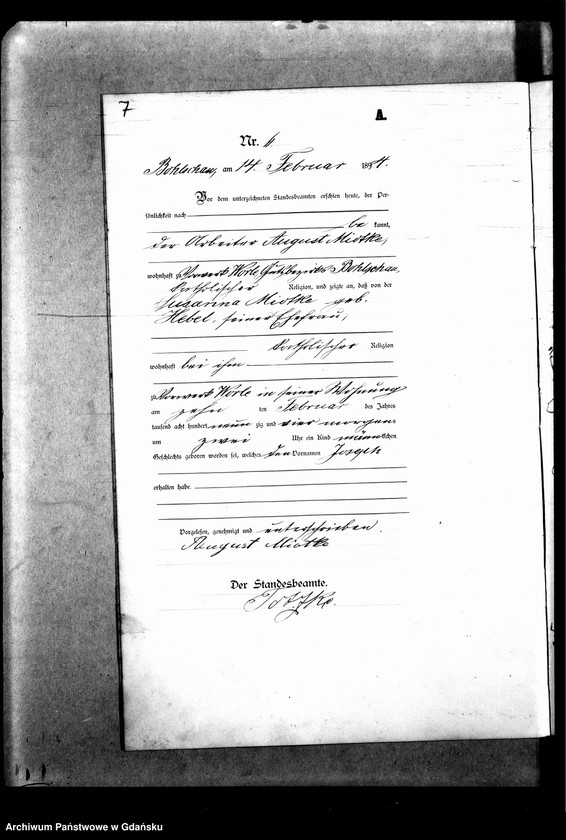 7
A.
Nr. 6
Bohlschau, am 14. Februar 1894.
Vor dem unterzeichneten Standesbeamten erschien heute, der Per-
sönlichkeit nach
be kannt,
der Arbeiter August Miotke,
wohnhaft zu Vorwerk Worle Gutsbezirks Bohlschau,
katholischer Religion, und zeigte an, daß von der
Susanna Miotke geb.
Hebel, seiner Ehefrau,
katholischer Religion
wohnhaft bei ihm
zu Vorwerk Worle in seiner Wohnung
am zehn ten Februar des Jahres
tausend acht hundert neun zig und vier morgens
um zwei Uhr ein Kind männlichen
Geschlechts geboren worden sei, welches den Vornamen Joseph
erhalten habe.
Vorgelesen, genehmigt und unterschrieben.
August Miotke
Der Standesbeamte.
Archiwum Państwowe w Gdańsku